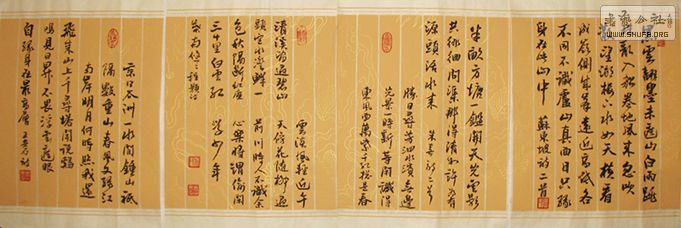 黑雲翻墨未遮山白雨跳
珠亂入船卷地風來忽吹
散望湖樓下水如天橫看
成嶺側成峰遠近高低各
不同不識廬山真面目只緣
身在此山中 蘇東坡詩二首
半畝方塘一鑑開天光雲影
共徘徊問渠那得清如許為有
源頭活水來 朱熹詩二首
勝日尋芳泗水濱無邊
光景一時新等閒識得
東風面萬紫千紅總是春
雲淡風輕近午
天傍花隨柳過
前川時人不識余
心樂將謂偷閒
學少年
清溪流過碧山
頭空水澄鮮一
色秋隔斷紅塵
三十里白雲紅
葉兩悠悠 程顥詩
京口瓜洲一水間鍾山祇
隔數重山春風又綠江
南岸明月何時照我還
飛來山上千尋塔聞說雞
鳴見日昇不畏浮雲遮眼
自緣身在最高層 王安石詩
WWW.SHUFA.ORG